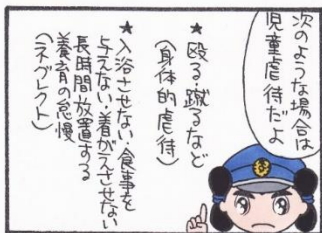 次のような場合は
児童虐待だよ
★殴る蹴るなど
(身体的虐待)
★入浴させない・食事を
与えない・着がえさせない
長時間放置する
養育の怠慢
(ネグレクト)